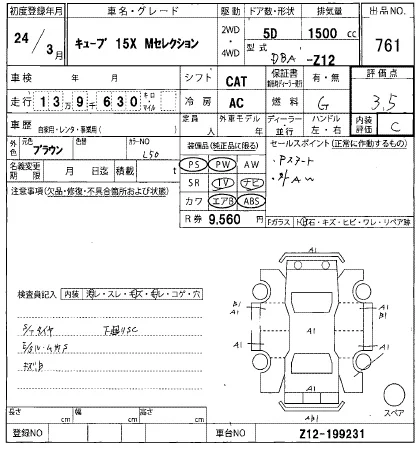 初度登録年月 車名・グレード 駆動 ドア数・形状 排気量 出品NO.
24/3月 キューブ 15X Mセレクション 2WD・4WD 5D 1500cc 761
型式 DBA-Z12
車検 年 月 シフト CAT 保証書 有・無 評価点
走行 13万9千630 キロ・マイル 冷房 AC 燃料 G 3.5
車歴 自家用・レンタ・事業用( ) 定員 人 外車モデル 年 ディーラー・並行 ハンドル 左・右 内装評価 C
外色 元色 ブラウン 色替 カラーNO L50
装備品(純正品に限る) セールスポイント(正常に作動するもの)
名義変更期限 月 日迄 積載 t
PS PW AW
Pスタート
注意事項(欠品・修復・不具合箇所および状態)
SR TV ナビ
カワ エアB ABS
R券 9,560円
Fガラス ト石・キズ・ヒビ・ワレ・リペア跡
検査員記入 内装 汚レ・スレ・キズ・モレ・コゲ・穴
A1
A1
B1
A1
A1
A1
A1
A1
A1
S/Tタイヤ 下廻りSC
スペア
長さ cm 幅 cm 高さ cm
登録NO 車台NO Z12-199231